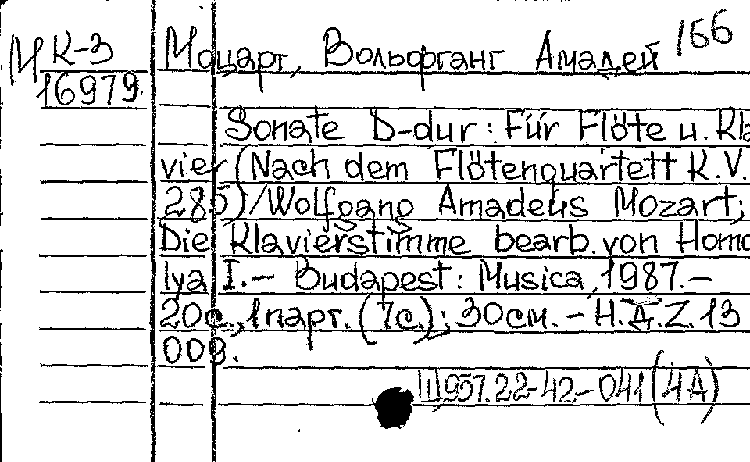 М К-3 Моцарт, Вольфганг Амадей 166
16979
Sonate D-dur: Für Flöte u. Kla
vier (Nach dem Flötenquartett K.V.
285)/Wolfgang Amadeus Mozart;
Die Klavierstimme bearb. von Homo
lya I.— Budapest: Musica, 1987.—
20с., 1 парт. (7с.); 30см.— H.A.Z. 13
009.
957.22-42-041 (4А)